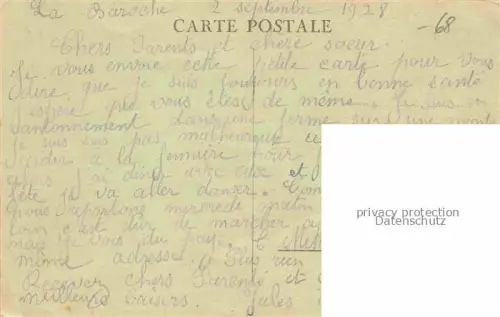 La Baroche 2 septembre 1928
CARTE POSTALE
-68
Chers Parents et chere soeur.
Je vous envoie cette petite carte pour vous
dire que je suis toujours en bonne santé
J'espère que vous êtes de même. Je suis en
cantonnement dans une ferme sur une
je suis pas malheureux
à la fermière pour
j'ai diner avec eux et
fête je va aller danser.
nous mercredi matin
loin c'est dur de marcher
mais je vois du pays.
même adresse. Plus rien
Recevez chers Parents et
meilleurs baisers. Jules
privacy protection
Datenschutz